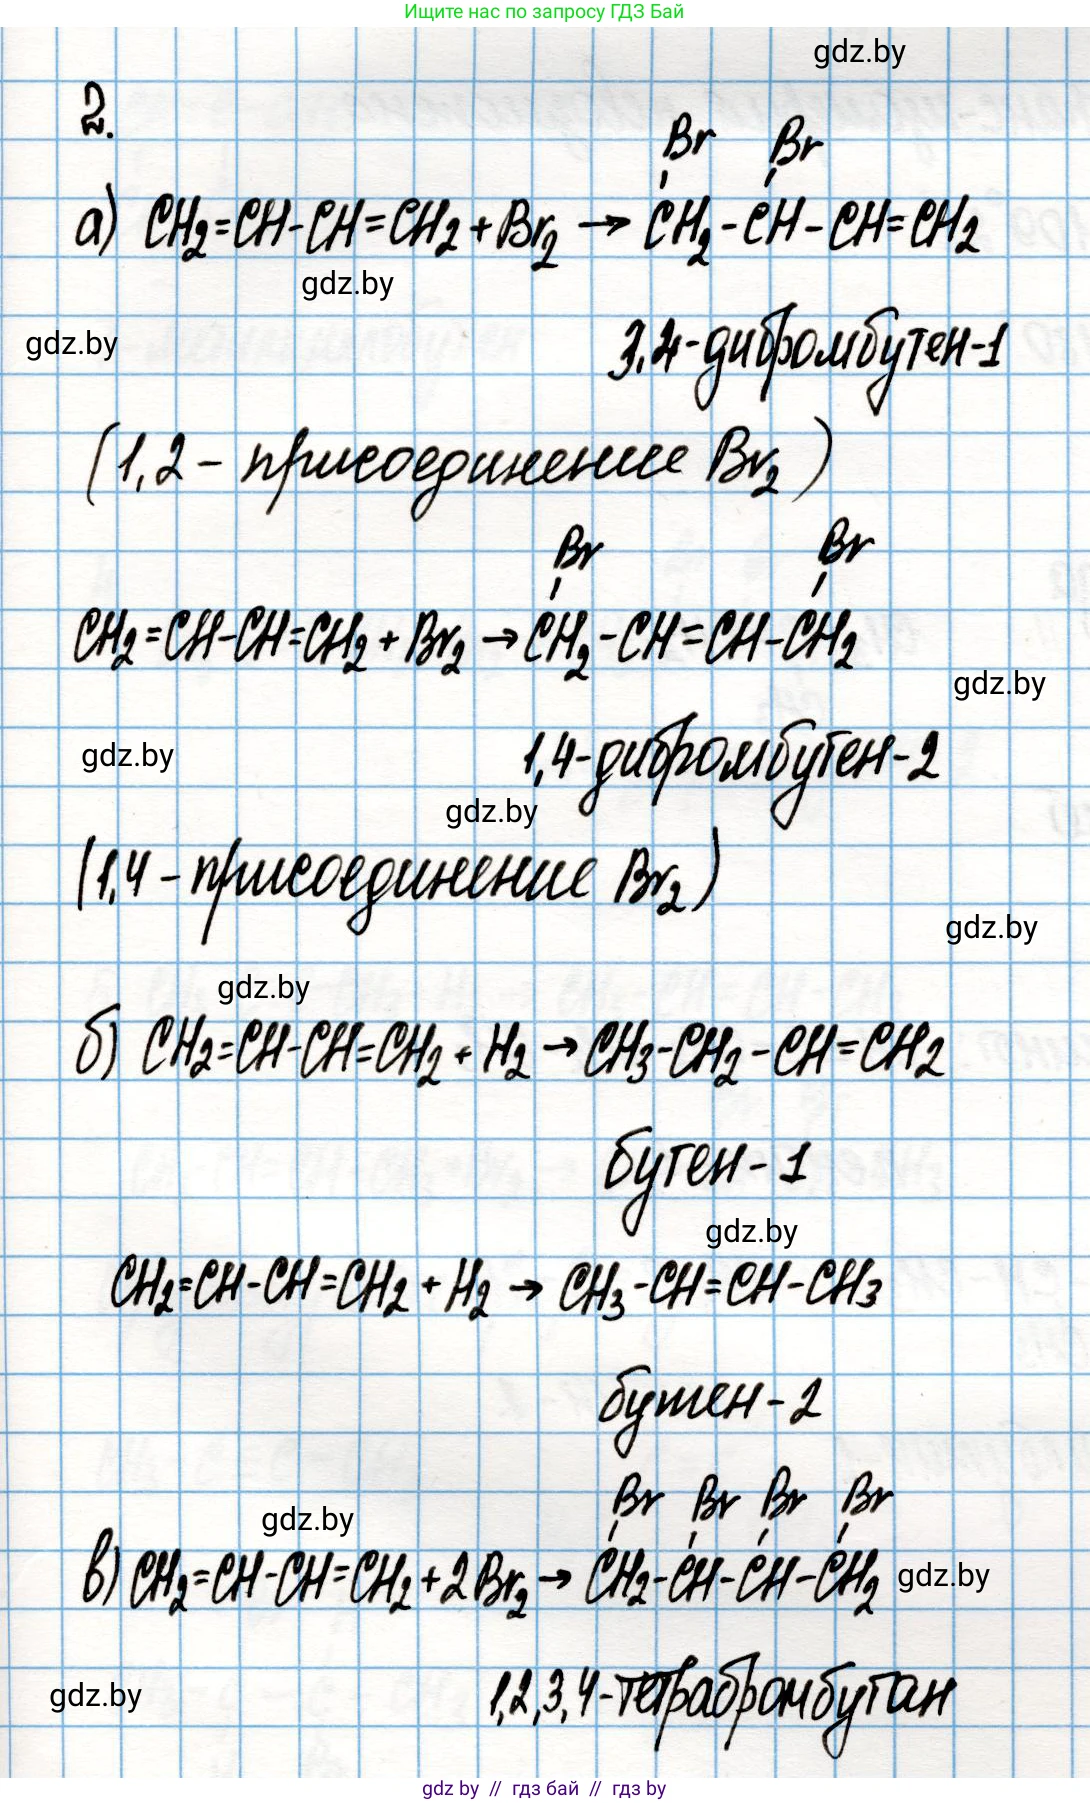 Ищите нас по запросу ГДЗ Бай
gdz.by
2.
Br Br
а) CH2=CH-CH=CH2+Br2 → CH2-CH-CH=CH2
gdz.by
gdz.by
3,4-дибромбутен-1
(1,2-присоединение Br2)
Br Br
CH2=CH-CH=CH2+Br2 → CH2-CH=CH-CH2
gdz.by
gdz.by
1,4-дибромбутен-2
gdz.by
(1,4-присоединение Br2)
gdz.by
gdz.by
б) CH2=CH-CH=CH2+H2 → CH3-CH2-CH=CH2
бутен-1
gdz.by
CH2=CH-CH=CH2+H2 → CH3-CH=CH-CH3
бутен-2
Br Br Br Br
gdz.by
в) CH2=CH-CH=CH2+2Br2 → CH2-CH-CH-CH2
gdz.by
gdz.by
1,2,3,4-тетрабромбутан
gdz by // гдз бай // гдз by